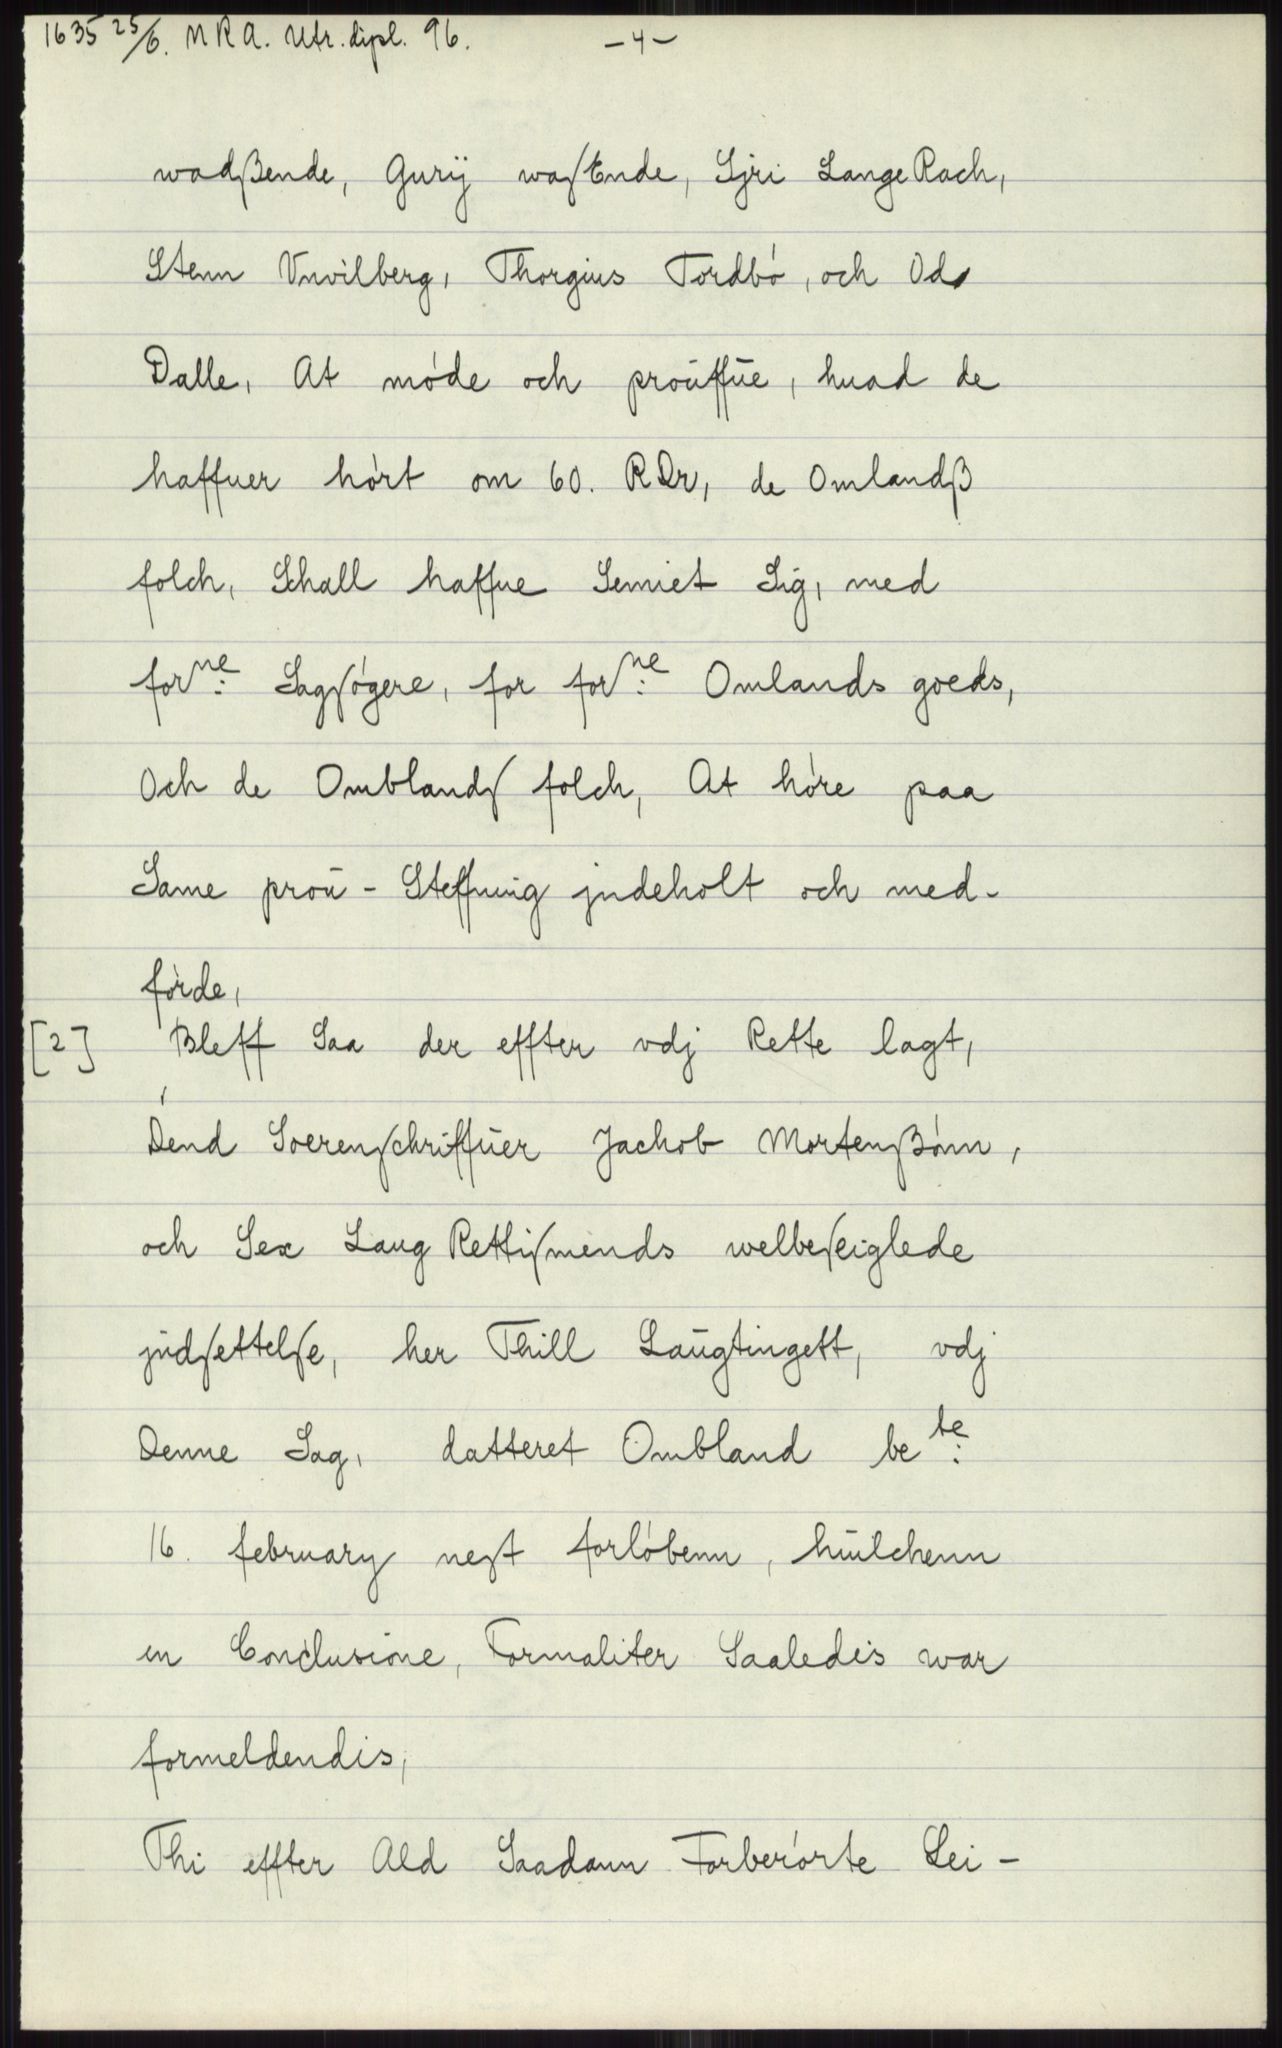 1635 25/6. NRA. Utr. dipl. 96. -4-
wadßende, Gurÿ waſtende, Sjri Lange Rach,
Stenn Vnvilberg, Thorgius Tordbó, och Od
Dalle, At móde och proŭffŭe, huad de
haffuer hórt om 60. RDr, de Omlandß
folch, Schall haffue Semiet Sig, med
forne: Sagſógere, for forne: Omlands goeds,
Och de Omblandſ folch, At hóre paa
Same proŭ- Steffning jndeholt och med-
fórde,
[2] Bleff Saa der effter vdj Rette lagt,
Dend Soerenſchriffŭer Jachob Mortenßónn,
och Sex Laug Rettiſmends welbeſeiglede
jndſettelſe, her Thill Laŭgtingett, vdj
Denne Sag, datteret Ombland bete:
16. february neſt forlóbenn, hŭilchenn
en Conclusione, Formaliter Saaledis war
formeldendis,
Thi effter Ald Saadann Forberórte Lei-